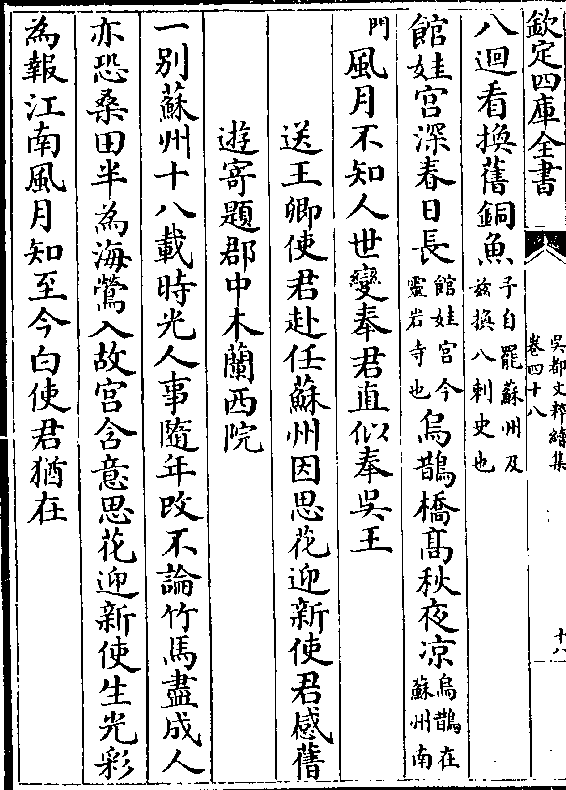 欽定四庫全書
吳都文粹續集
卷四十八
十八
八迴看換舊銅魚予自罷蘇州及茲換八刺史也
館娃宫深春日長館娃宫今靈岩寺也烏鵲橋髙秋夜凉烏鵲在蘇州南
門風月不知人世變奉君直似奉吳王
送王卿使君赴任蘇州因思花迎新使君感舊
遊寄題郡中木蘭西院
一别蘇州十八載時光人事隨年改不論竹馬盡成人
亦恐桑田半為海鶯入故宫含意思花迎新使生光彩
為報江南風月知至今白使君猶在